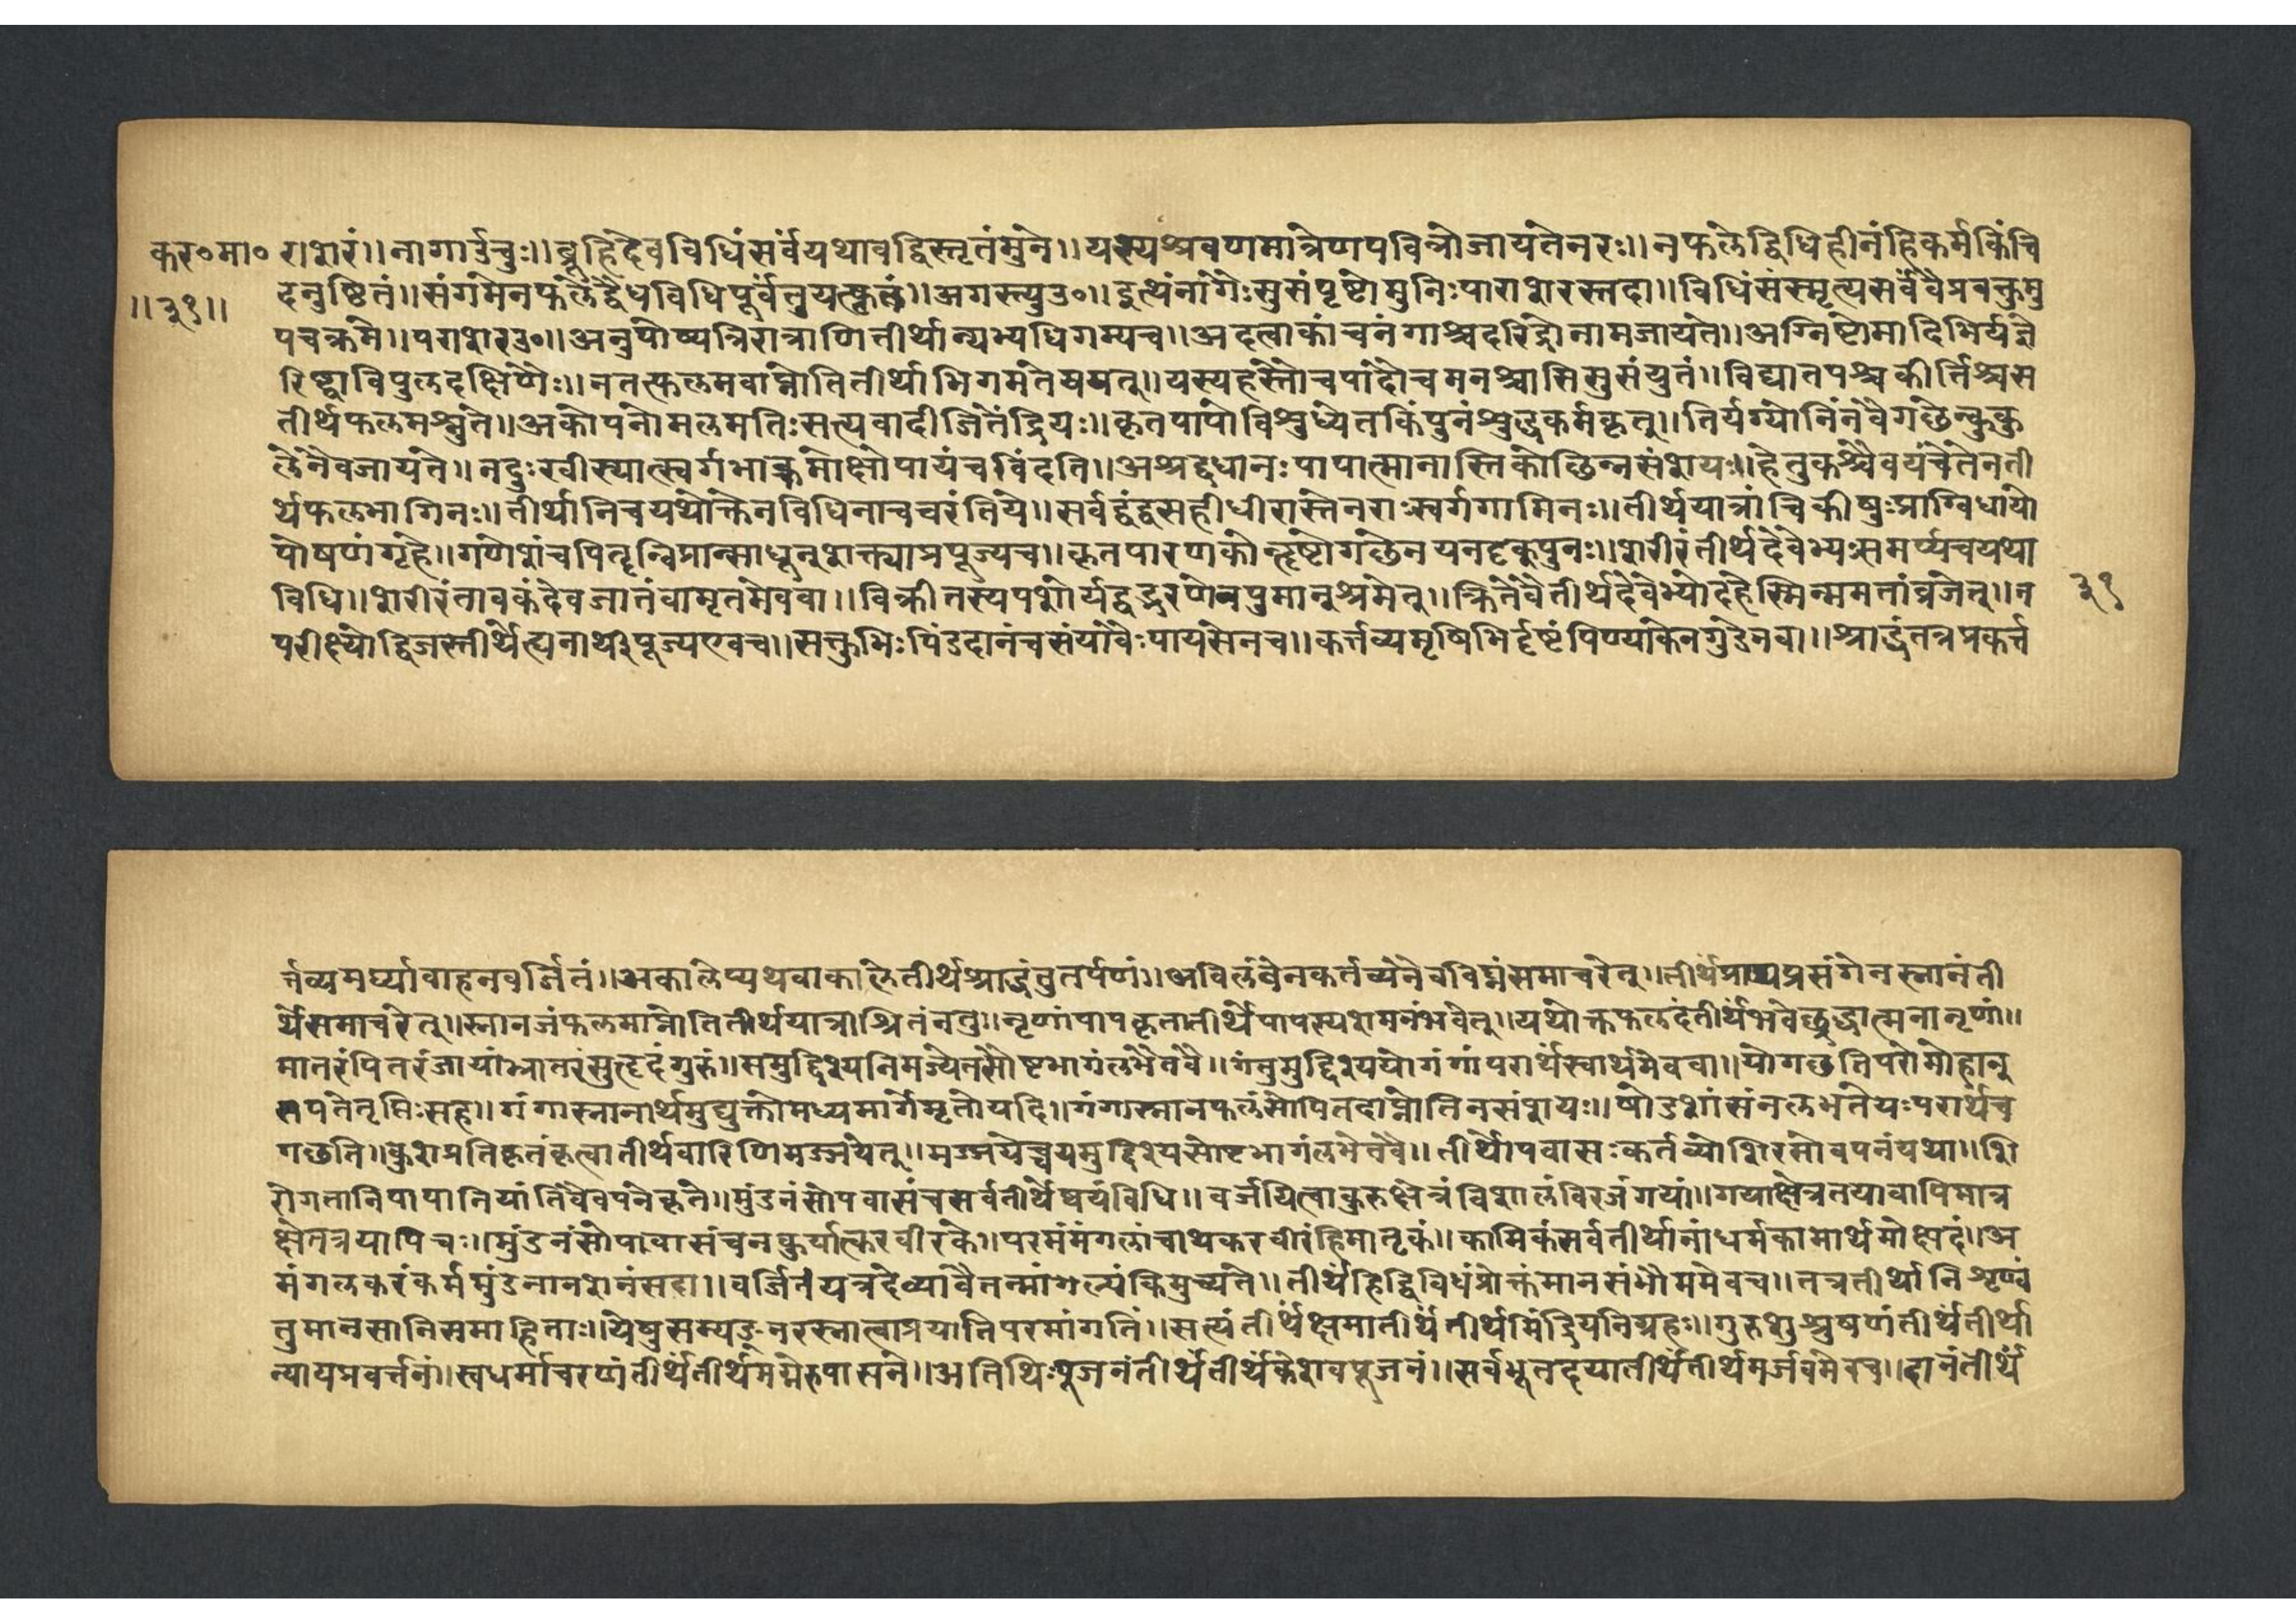 कर०मा० राशरं॥नागाऊचुः॥ब्रूहिदेवविधिंसर्वंयथावद्विस्तृतंमुने॥यस्यश्रवणमात्रेणपवित्रोजायतेनरः॥नफलेद्विधिहीनंहिकर्मकिंचि
॥३१॥ दनुष्टितं॥संगमेनफलेद्वैधविधिपूर्वंतुयत्कृतं॥अगस्त्युउ०॥इत्थंनागैःसुसंपृष्टोमुनिःपाराशरस्तदा॥विधिंसंस्मृत्यसर्वंवैप्रवक्तुमु
पचक्रमे॥पराशरउ०॥अनुपोष्यत्रिरात्राणितीर्थान्यभ्यधिगम्यच॥अदत्वाकांचनंगाश्चदरिद्रोनामजायते॥अग्निष्टोमादिभिर्यज्ञै
रिष्ट्वाविपुलदक्षिणैः॥नतत्फलमवाप्नोतितीर्थाभिगमतेययत्॥यस्यहस्तौचपादौचमनश्चासिसुसंयुतं॥विद्यातपश्चकीर्त्तिश्चस
तीर्थफलमश्नुते॥अकोपनोमलमतिःसत्यवादीजितेंद्रियः॥कृतपापोविश्रुध्येतकिंपुनंश्रुद्धकर्मकृत्॥तिर्यग्योनिंनवैगछेन्कुकु
लेनैवजायते॥नदुःखीस्यात्स्वर्गभाक्कमोक्षोपायंचविंदति॥अश्रद्दधानःपापात्मानास्तिकोछिन्नसंशयः॥हेतुकश्चैवयंचेतेनती
र्थफलभागिनः॥तीर्थानिचयथोक्तेनविधिनाचचरंतिये॥सर्वद्वंद्वसहीधीरास्तेनराःस्वर्गगामिनः॥तीर्थयात्रांचिकीषुःप्राग्विधायो
पोषणंगृहे॥गणेशंचपितॄन्विप्रान्साधूनुशक्त्याप्रपूज्यच॥कृतपारणकोत्दृष्टोगछेनयनदृकुपुनः॥शरीरंतीर्थदेवेभ्यःसमर्प्यचयथा
विधि॥शरीरंतावकंदेवजातंवामृतमेववा॥विक्रीतस्यपशोर्यद्वद्भरणेवपुमानुश्रमेत्॥क्षितेवैतीर्थदेवेभ्योदहेस्मिन्ममतांव्रजेत्॥न ३१
परीक्ष्योद्विजस्तीर्थेत्यनाथःपूज्यएवच॥सक्तुभिःपिंडदानंचसंयावैःपायसेनच॥कर्त्तव्यमृषिभिर्दृष्टंपिण्याकेनगुडेनवा॥श्राद्धंतत्रप्रकर्त्त
र्त्तव्यमर्घ्यावाहनवर्जितं॥अकालेप्यथवाकालेतीर्थश्राद्धंतुतर्पणं॥अविलंबेनकर्तव्यंनैवविघ्नंसमाचरेत्॥तीर्थंप्राप्यप्रसंगेनस्नानंती
र्थेसमाचरेत्॥स्नानजंफलमाप्नोतितीर्थयात्राश्रितंनतु॥नृणांपापकृतातीर्थेपापस्यशमनंभवेत्॥यथोक्तफलदंतीर्थंभवेच्छुद्धात्मनानृणां॥
मातरंपितरंजायांभ्रातरंसुत्दृदंगुरुं॥समुद्दिश्यनिमज्येतसोष्टभागंलभेतवै॥गंतुमुद्दिश्ययोगंगांपरार्थेस्वार्थमेववा॥योगछतिपरोमोहात्
सपतेतृप्तिःसह॥गंगास्नानार्थमुद्युक्तोमध्यमार्गेमृतोयदि॥गंगास्नानफलंसोपितदाप्नोतिनसंशयः॥षोडशांसंनलभतेयःपरार्थेच
गछति॥कुशप्रतिकृतंकृत्वातीर्थवारिणिमज्जयेत्॥मज्जयेच्चयमुद्दिश्यसोष्टभागंलभेतवै॥तीर्थोपवासःकर्तव्योशिरसोवपनंयथा॥शि
रोगतानिपापानियांतिवैवपनेकृते॥मुंडनंसोपवासंचसर्वतीर्थेष्वयंविधि॥वर्जयित्वाकुरुक्षेत्रंविशालंविरजंगयां॥गयाक्षेत्रतयावापिमात्र
क्षेतत्रयापिचः॥मुंडनंसोपावासंचनकुर्यात्करवीरके॥परमंमंगलांचाथकरवीरंहिमातृकं॥कामिकंसर्वतीर्थानांधर्मकामार्थमोक्षदं॥अ
मंगलकरंकर्ममुंडनानशनंसदा॥वर्जितंयत्रदेव्यावैतन्मांगल्यंकिमुच्यते॥तीर्थंहिद्विविधंप्रोक्तंमानसंभौममेवच॥तत्रतीर्थानिशृण्वं
तुमानसानिसमाहिताः॥येषुसम्यङ्नरस्नात्वाप्रयातिपरमांगतिं॥सत्यंतीर्थंक्षमातीर्थंतीर्थमिंद्रियनिग्रहः॥गुरुशुश्रुषणंतीर्थंतीर्था
न्यायप्रवर्त्तनं॥स्वधर्माचरणंतीर्थंतीर्थमग्नेरुपासने॥अतिथिःपूजनंतीर्थंतीर्थंकेशवपूजनं॥सर्वभूतदयातीर्थंतीर्थमर्जवमेवच॥दानंतीर्थं